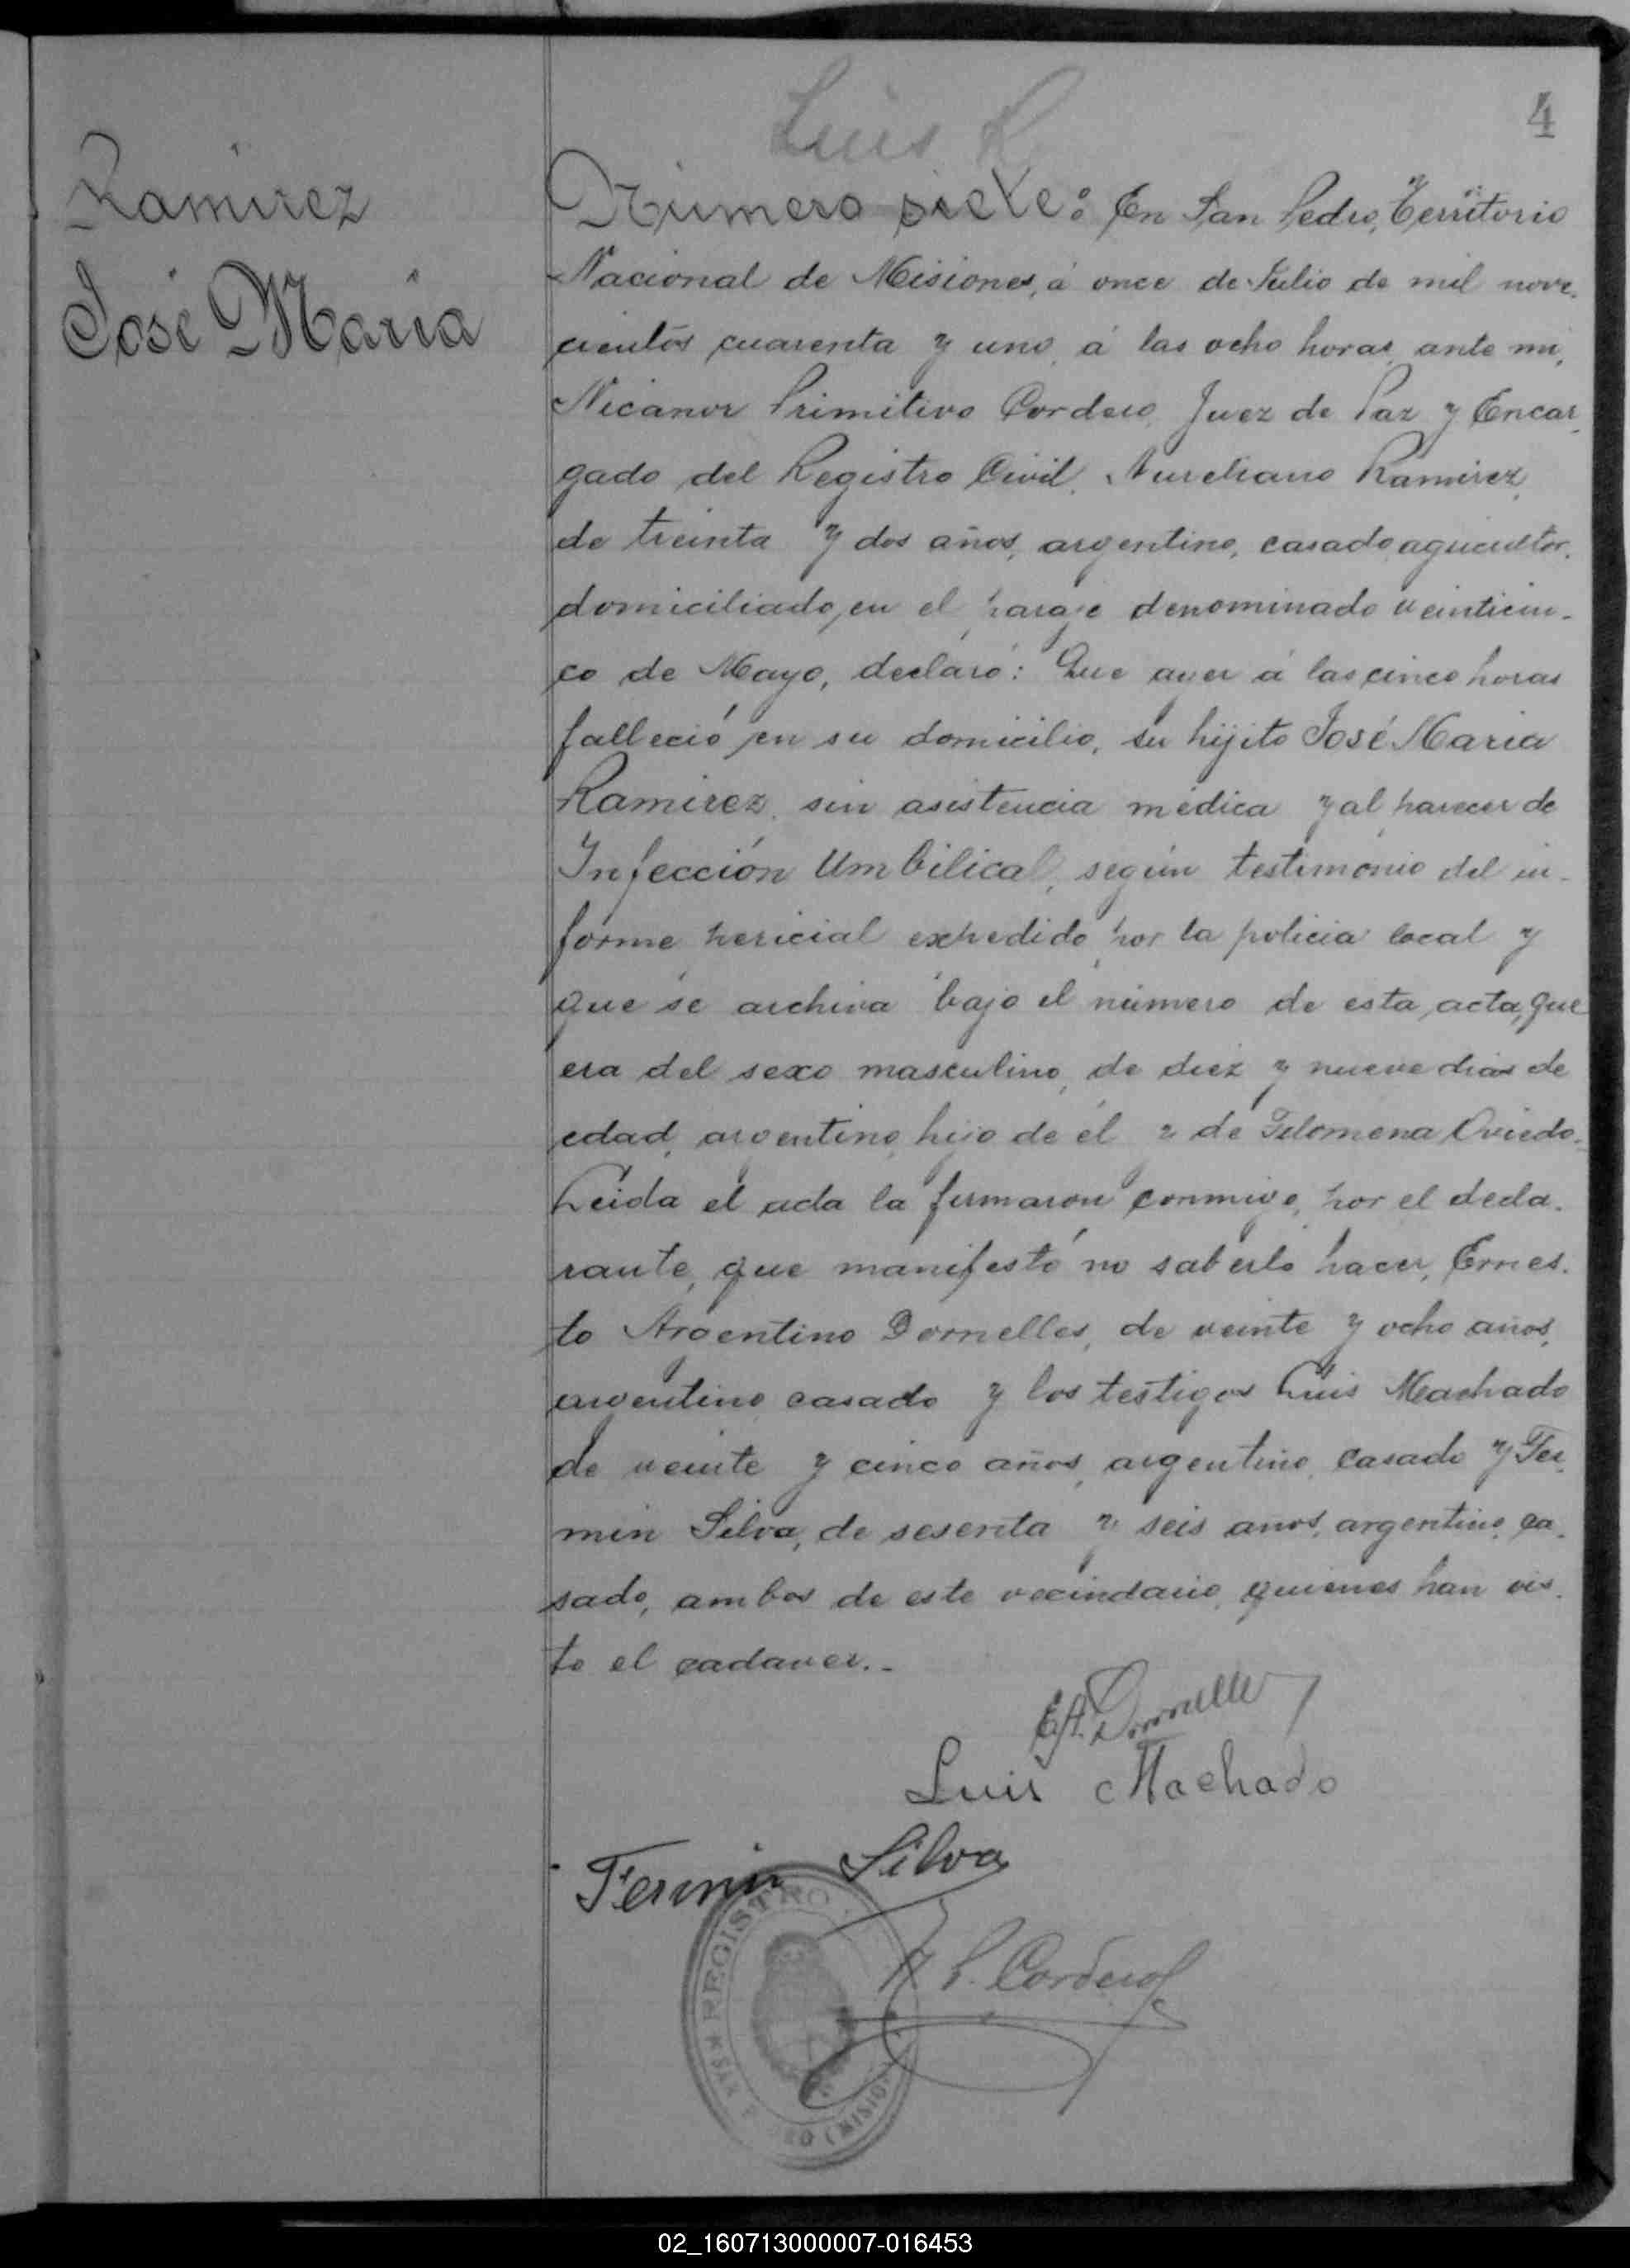 Luis R
4
Ramirez
José Maria
Número siete: En San Pedro, Territorio
Nacional de Misiones, á once de Julio de mil nove-
cientos cuarenta y uno, á las ocho horas, ante mi,
Nicanor Primitivo Cordero, Juez de Paz y Encar-
gado del Registro Civil, Aureliano Ramirez,
de treinta y dos años, argentino, casado, agricultor,
domiciliado, en el paraje denominado veinticin-
co de Mayo, declaró: Que ayer á las cinco horas
falleció en su domicilio, su hijito José Maria
Ramirez, sin asistencia médica y al parecer de
Infección Umbilical, según testimonio del in-
forme pericial expedido por la policia local y
que se archiva bajo el número de esta acta, que
era del sexo masculino, de diez y nueve dias de
edad, argentino, hijo de él y de Filomena Oviedo.
Leida el acta la firmaron conmigo, por el decla-
rante, que manifestó no saberlo hacer, Ernes-
to Argentino Dornelles, de veinte y ocho años,
argentino, casado y los testigos Luis Machado
de veinte y cinco años, argentino, casado y Fer-
min Silva, de sesenta y seis años, argentino, ca-
sado, ambos de este vecindario, quienes han vis-
to el cadaver.-
E.A. Dornelles
Luis Machado
Fermin Silva
N P. Cordero
REGISTRO
SAN
DRO (MISION
02_160713000007-016453